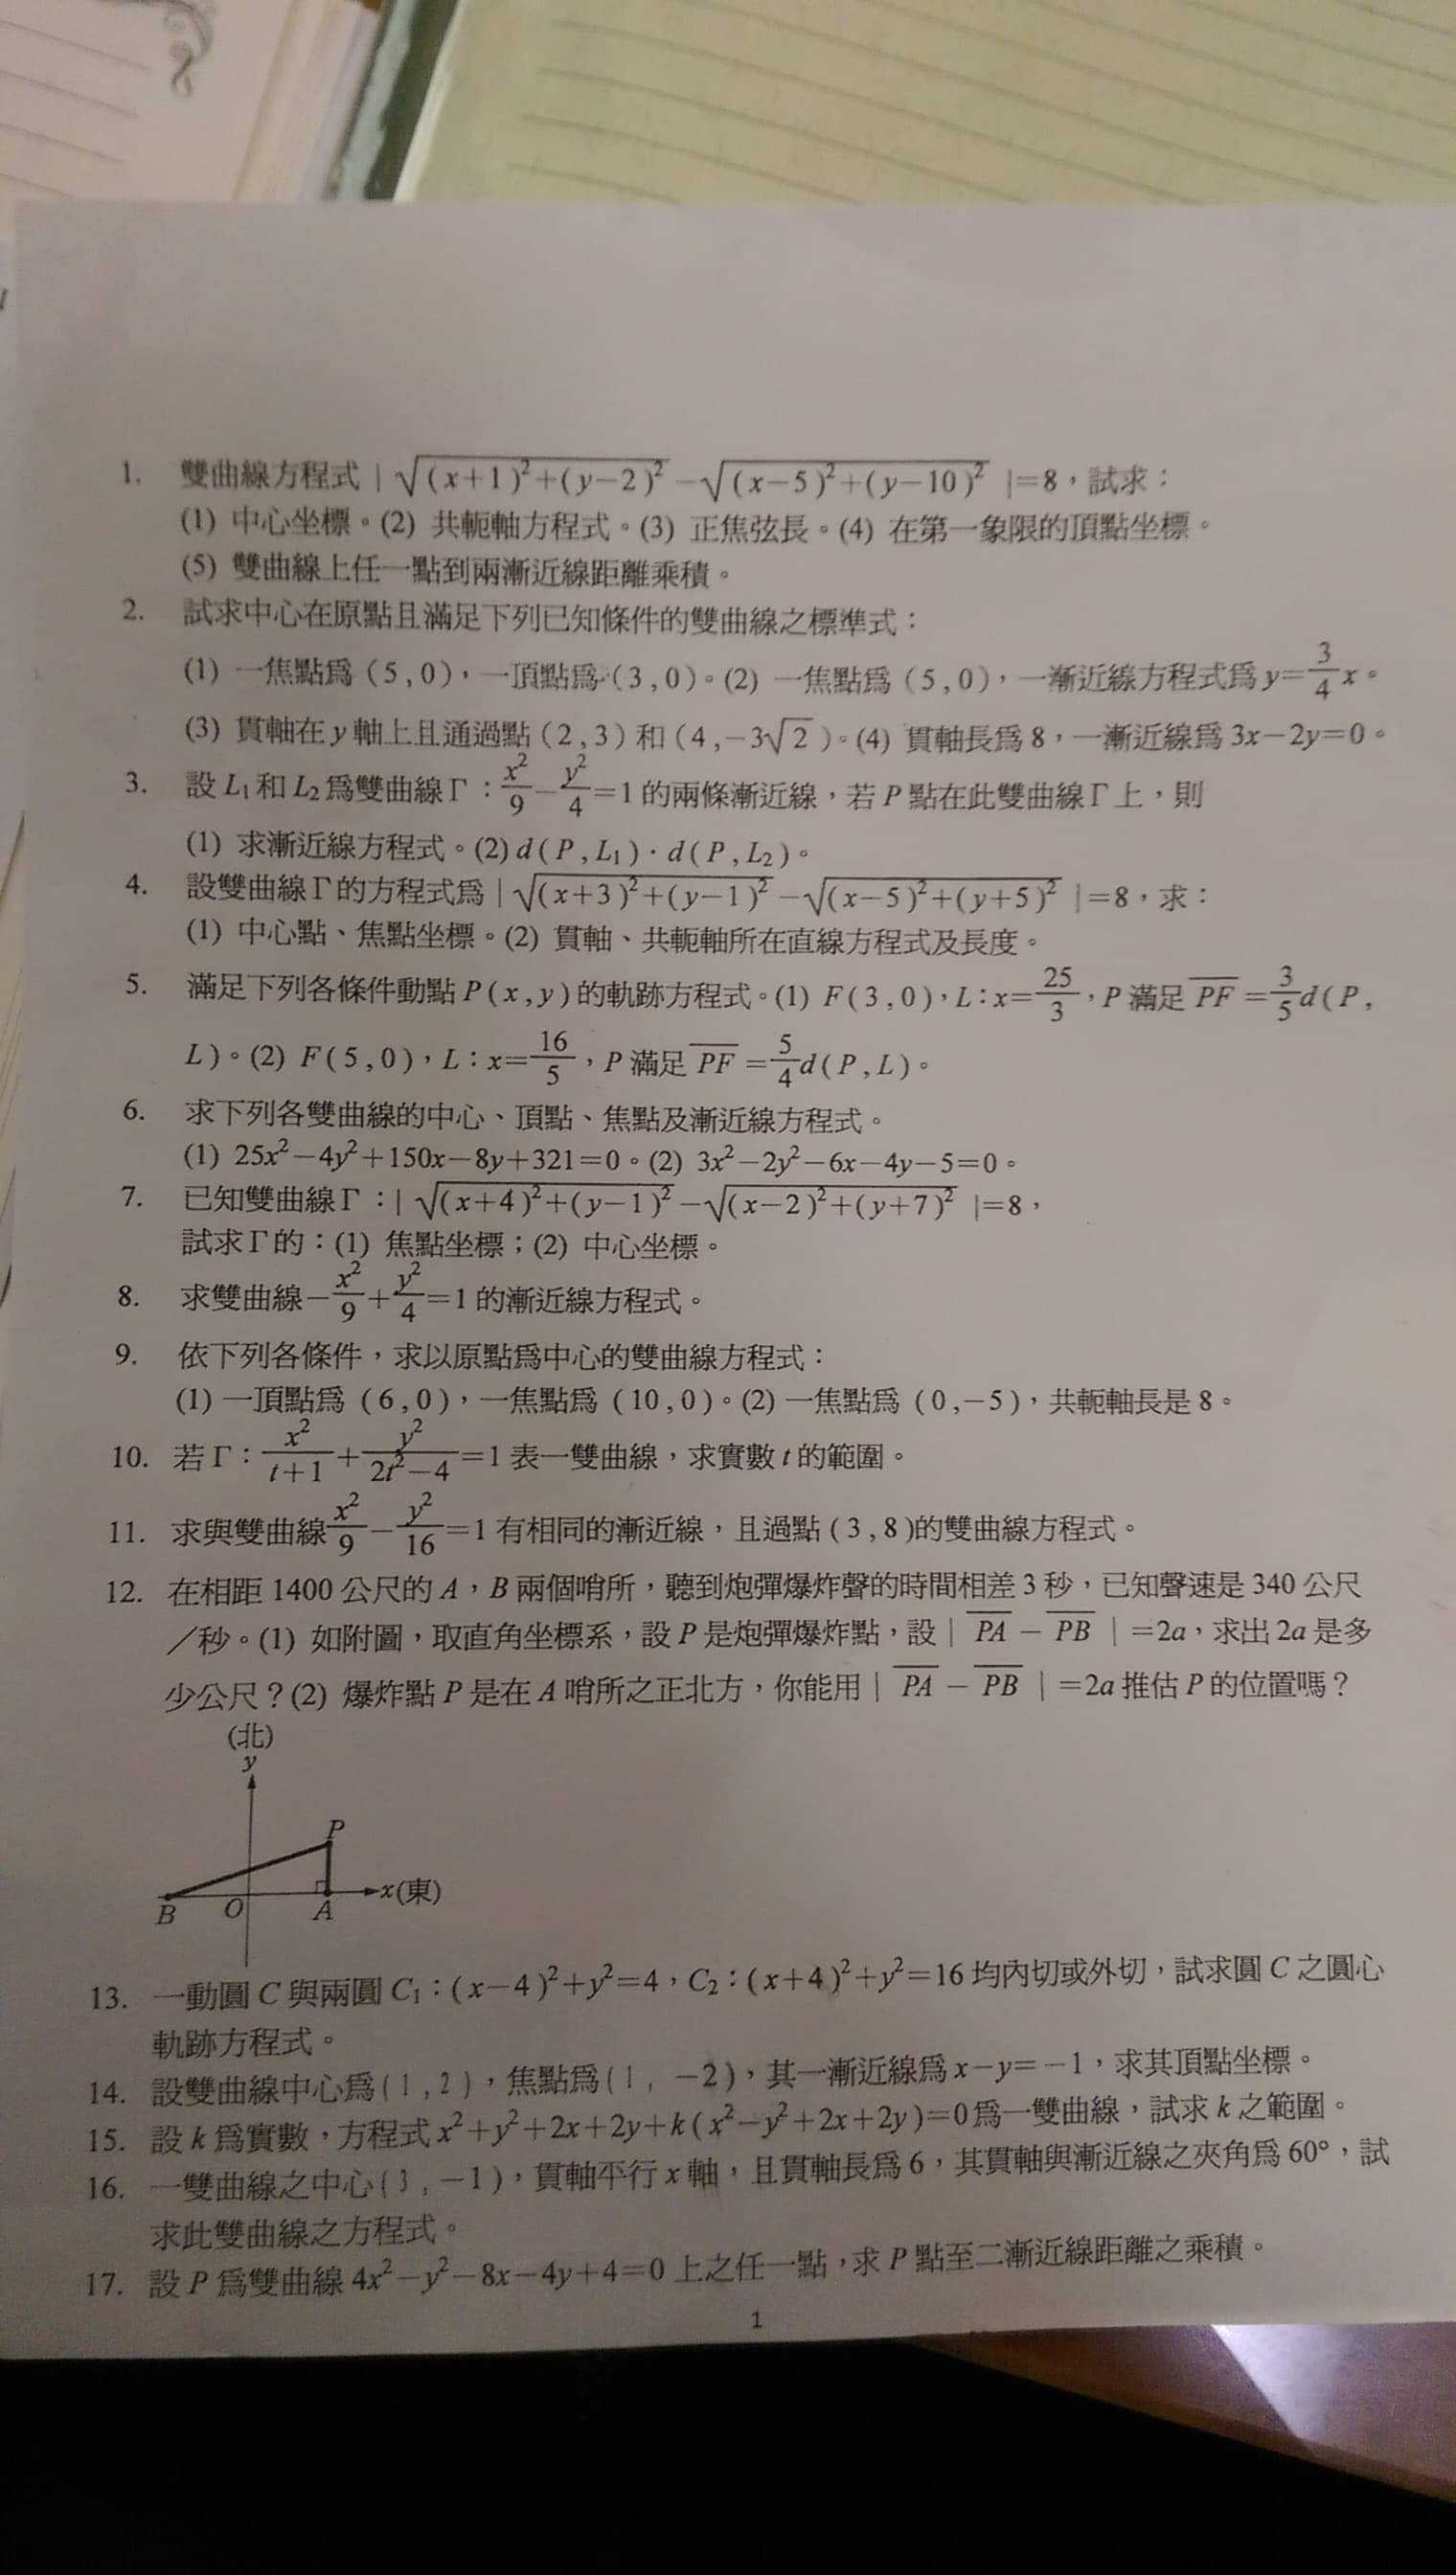 1. 雙曲線方程式 | √(x+1)²+(y−2)² −√(x−5)²+(y−10)² |=8，試求：
(1) 中心坐標。(2) 共軛軸方程式。(3) 正焦弦長。(4) 在第一象限的頂點坐標。
(5) 雙曲線上任一點到兩漸近線距離乘積。
2. 試求中心在原點且滿足下列已知條件的雙曲線之標準式：
(1) 一焦點爲 (5,0)，一頂點爲 (3,0)。(2) 一焦點爲 (5,0)，一漸近線方程式爲 y=3/4 x。
(3) 貫軸在 y 軸上且通過點 (2,3) 和 (4,−3√2)。(4) 貫軸長爲 8，一漸近線爲 3x−2y=0。
3. 設 L₁ 和 L₂ 爲雙曲線 Γ：x²/9−y²/4=1 的兩條漸近線，若 P 點在此雙曲線 Γ 上，則
(1) 求漸近線方程式。(2) d(P,L₁)·d(P,L₂)。
4. 設雙曲線 Γ 的方程式爲 | √(x+3)²+(y−1)² −√(x−5)²+(y+5)² |=8，求：
(1) 中心點、焦點坐標。(2) 貫軸、共軛軸所在直線方程式及長度。
5. 滿足下列各條件動點 P(x,y) 的軌跡方程式。(1) F(3,0)，L：x=25/3，P 滿足 PF=3/5 d(P,
L)。(2) F(5,0)，L：x=16/5，P 滿足 PF=5/4 d(P,L)。
6. 求下列各雙曲線的中心、頂點、焦點及漸近線方程式。
(1) 25x²−4y²+150x−8y+321=0。(2) 3x²−2y²−6x−4y−5=0。
7. 已知雙曲線 Γ：| √(x+4)²+(y−1)² −√(x−2)²+(y+7)² |=8，
試求 Γ 的：(1) 焦點坐標；(2) 中心坐標。
8. 求雙曲線−x²/9+y²/4=1 的漸近線方程式。
9. 依下列各條件，求以原點爲中心的雙曲線方程式：
(1) 一頂點爲 (6,0)，一焦點爲 (10,0)。(2) 一焦點爲 (0,−5)，共軛軸長是 8。
10. 若 Γ：x²/t+1+y²/2t²−4=1 表一雙曲線，求實數 t 的範圍。
11. 求與雙曲線 x²/9−y²/16=1 有相同的漸近線，且過點 (3,8) 的雙曲線方程式。
12. 在相距 1400 公尺的 A，B 兩個哨所，聽到炮彈爆炸聲的時間相差 3 秒，已知聲速是 340 公尺
／秒。(1) 如附圖，取直角坐標系，設 P 是炮彈爆炸點，設 | PA − PB |=2a，求出 2a 是多
少公尺？(2) 爆炸點 P 是在 A 哨所之正北方，你能用 | PA − PB |=2a 推估 P 的位置嗎？
(北)
y
P
B O A x(東)
13. 一動圓 C 與兩圓 C₁：(x−4)²+y²=4，C₂：(x+4)²+y²=16 均內切或外切，試求圓 C 之圓心
軌跡方程式。
14. 設雙曲線中心爲(1,2)，焦點爲(1, −2)，其一漸近線爲 x−y=−1，求其頂點坐標。
15. 設 k 爲實數，方程式 x²+y²+2x+2y+k(x²−y²+2x+2y)=0 爲一雙曲線，試求 k 之範圍。
16. 一雙曲線之中心(3,−1)，貫軸平行 x 軸，且貫軸長爲 6，其貫軸與漸近線之夾角爲 60°，試
求此雙曲線之方程式。
17. 設 P 爲雙曲線 4x²−y²−8x−4y+4=0 上之任一點，求 P 點至二漸近線距離之乘積。
1